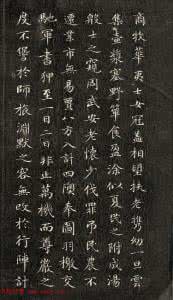 商牧華夷士女冠蓋相望扶老攜幼一旦雲
集壺漿塞野簞食盈塗似夏民之附成湯
殷士之窺周武安老懷少伐罪弔民農不
遷業市無易賈八方入計四隩奉圖羽檄交
馳軍書狎至一日二日非止萬機而尊嚴之
度不愆於師旅淵默之容無改於行陣計